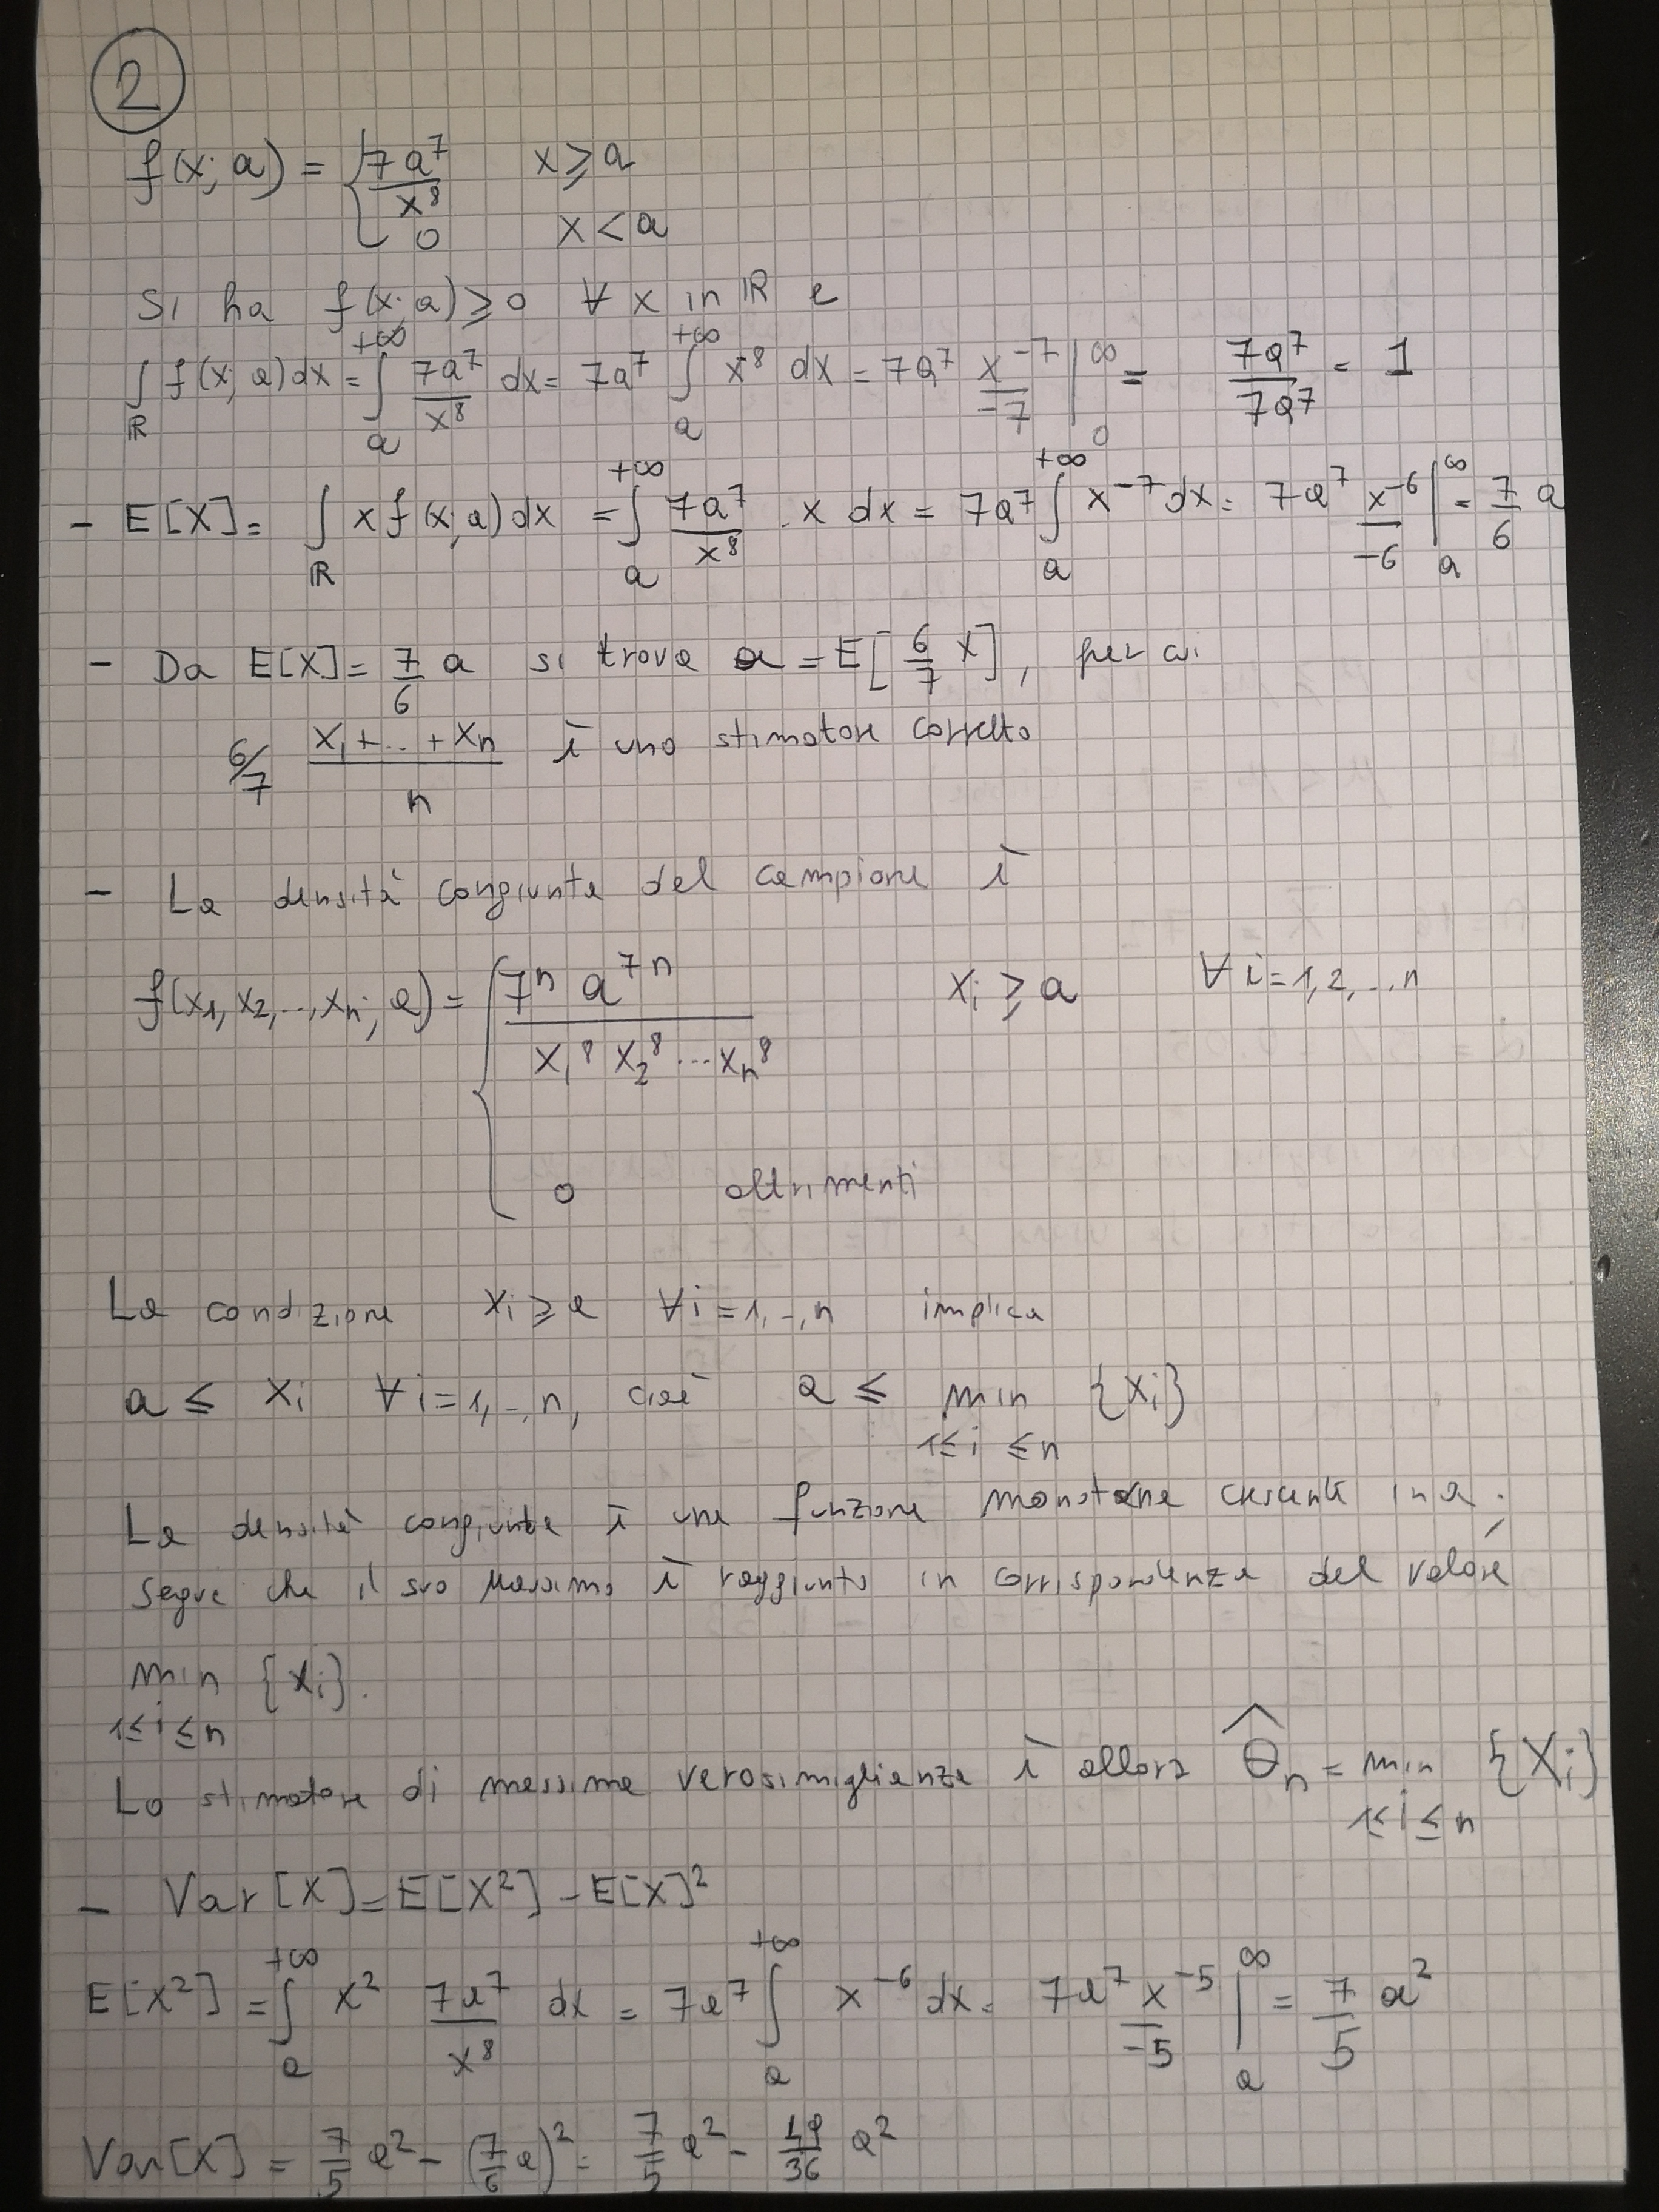 2
f(x; a) = { 7a⁷/x⁸ x ≥ a
0 x < a
Si ha f(x; a) ≥ 0 ∀ x in ℝ e
∫_ℝ f(x; a) dx = ∫_a^{+∞} 7a⁷/x⁸ dx = 7a⁷ ∫_a^{+∞} x⁻⁸ dx = 7a⁷ x⁻⁷/-7 |_0^∞ = 7a⁷/7a⁷ = 1
- E[X] = ∫_ℝ x f(x; a) dx = ∫_a^{+∞} 7a⁷/x⁸ · x dx = 7a⁷ ∫_a^{+∞} x⁻⁷ dx = 7a⁷ x⁻⁶/-6 |_a^∞ = 7/6 a
- Da E[X] = 7/6 a si trova a = E[6/7 X], per cui
6/7 (X₁ + ... + Xₙ)/n è uno stimatore corretto
- La densità congiunta del campione è
f(x₁, x₂, ..., xₙ; a) = { 7ⁿ a⁷ⁿ / x₁⁸ x₂⁸ ... xₙ⁸ xᵢ ≥ a ∀ i = 1, 2, ..., n
0 altrimenti
La condizione xᵢ ≥ a ∀ i = 1, .., n implica
a ≤ xᵢ ∀ i = 1, .., n, cioè a ≤ min {xᵢ}
1 ≤ i ≤ n
La densità congiunta è una funzione monotona crescente in a;
segue che il suo massimo è raggiunto in corrispondenza del valore
min {xᵢ}.
1 ≤ i ≤ n
Lo stimatore di massima verosimiglianza è allora Θ̂ₙ = min {Xᵢ}
1 ≤ i ≤ n
- Var[X] = E[X²] - E[X]²
E[X²] = ∫_a^{+∞} x² 7a⁷/x⁸ dx = 7a⁷ ∫_a^{+∞} x⁻⁶ dx = 7a⁷ x⁻⁵/-5 |_a^∞ = 7/5 a²
Var[X] = 7/5 a² - (7/6 a)² = 7/5 a² - 49/36 a²